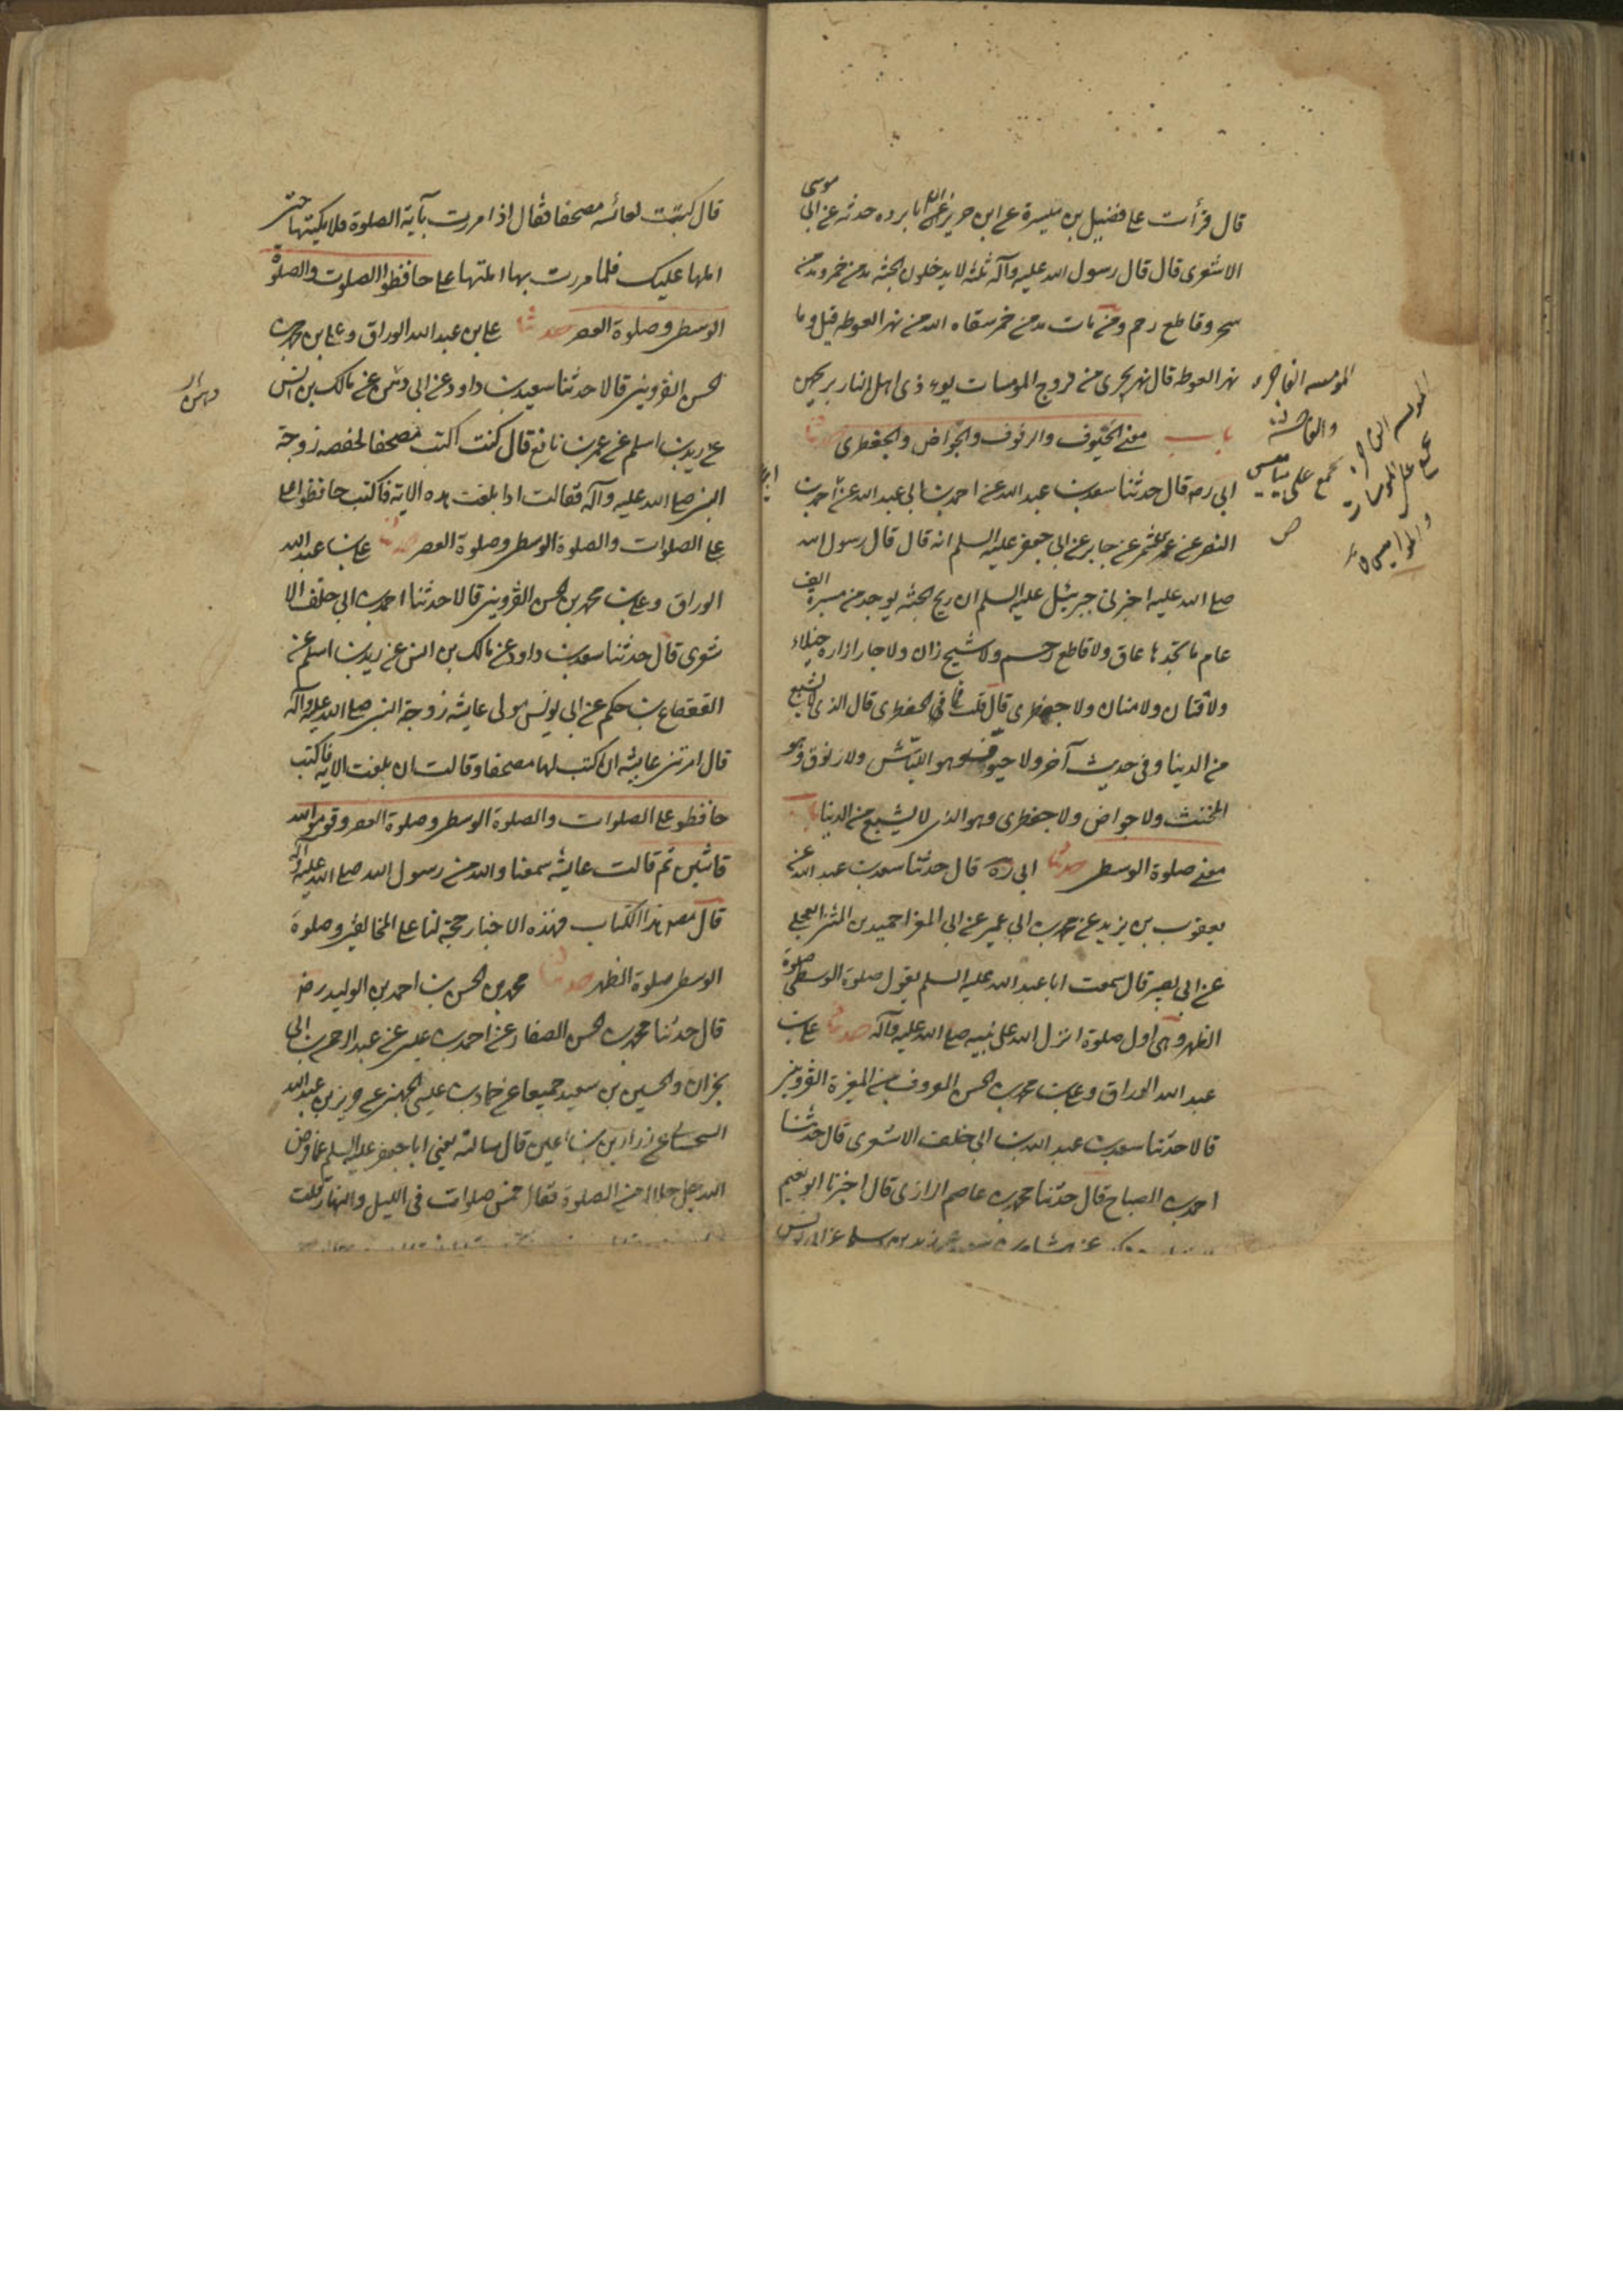 قال قرأت على فضيل بن ميسرة عن ابن حريز ان ابا برده حدثه عن ابى موسى
الاشعرى قال قال رسول الله عليه وآله ثلثة لا يدخلون الجنة مدمن خمر ومدمن
سحر وقاطع رحم ومن مات مدمن خمر سقاه الله من نهر الغوطه قيل وما
نهر الغوطه قال نهر يجرى من فروج المومسات يوءذى اهل النار ريحهن
باب معنى الحيوف والزنوف والجواض والجعظرى حدثنا
ابى ره قال حدثنا سعد بن عبد الله عن احمد بن ابى عبد الله عن احمد بن
النضر عن عمرو بن شمر عن جابر عن ابى جعفر عليه السلم انه قال قال رسول الله
صلى الله عليه اخبرنى جبرئيل عليه السلم ان ريح الجنة يوجد من مسيرة الف
عام ما يجدها عاق ولا قاطع رحم ولا شيخ زان ولا جار ازاره خيلاء
ولا فتان ولا منان ولا جعظرى قال قلت فما الجعظرى قال الذى لا يشبع
من الدنيا وفى حديث آخر ولا حيوف وهو النباش ولا زنوق وهو
المخنث ولا جواض ولا جعظرى وهو الذى لا يشبع من الدنيا باب
معنى صلوة الوسطى حدثنا ابى ره قال حدثنا سعد بن عبد الله عن
يعقوب بن يزيد عن محمد بن ابى عمير عن ابى المغرا حميد بن المثنى العجلى
عن ابى بصير قال سمعت ابا عبد الله عليه السلم يقول صلوة الوسطى صلوة
الظهر وهى اول صلوة انزل الله على نبيه صلى الله عليه وآله حدثنا على بن
عبد الله الوراق وعلى بن محمد بن الحسن المعروف بابن المغيرة القزوينى
قالا حدثنا سعد بن عبد الله بن ابى خلف الاشعرى قال حدثنا
احمد بن الصباح قال حدثنا محمد بن عاصم الرازى قال اخبرنا ابو نعيم
المومسه الفاجره
والفاحشه
يجمع على مياميس
ص
المومسه الفاجره
يجمع على المومسات
والمواميس
قال كتبت لعائشه مصحفا فقال اذا مررت بآية الصلوة فلا يكتبها حتى
املها عليك فلما مررت بها املتها على حافظوا الصلوت والصلوة
الوسطى وصلوة العصر حدثنا على بن عبد الله الوراق وعلى بن محمد بن
الحسن القزوينى قالا حدثنا سعد بن داود عن ابى زهر عن مالك بن انس
عن زيد بن اسلم عن عمر بن نافع قال كنت اكتب مصحفا لحفصه زوجة
النبى صلى الله عليه وآله فقالت اذا بلغت هذه الاية فاكتب حافظوا على
على الصلوات والصلوة الوسطى وصلوة العصر حدثنا على بن عبد الله
الوراق وعلى بن محمد بن الحسن القزوينى قالا حدثنا احمد بن ابى خلف الا
شعرى قال حدثنا سعد بن داود عن مالك بن انس عن زيد بن اسلم عن
القعقاع بن حكم عن ابى يونس مولى عايشه زوجة النبى صلى الله عليه وآله
قال امرتنى عايشه ان اكتب لها مصحفا وقالت ان بلغت الايه فاكتب
حافظوا على الصلوات والصلوة الوسطى وصلوة العصر وقوموا لله
قانتين ثم قالت عايشه سمعنا والله من رسول الله صلى الله عليه وآله
قال مص هذا الكتاب فهذه الاخبار حجة لنا على المخالفين وصلوة
الوسطى صلوة الظهر حدثنا محمد بن الحسن بن احمد بن الوليد رض
قال حدثنا محمد بن الحسن الصفار عن احمد بن عيسى عن عبد الرحمن بن ابى
نجران والحسين بن سعيد جميعا عن حماد بن عيسى الجهنى عن حريز بن عبد الله
السجستانى عن زرارة بن اعين قال سالته يعنى ابا جعفر عليه السلم عما فرض
الله جل جلاله من الصلوة فقال خمس صلوات فى الليل والنهار قلت